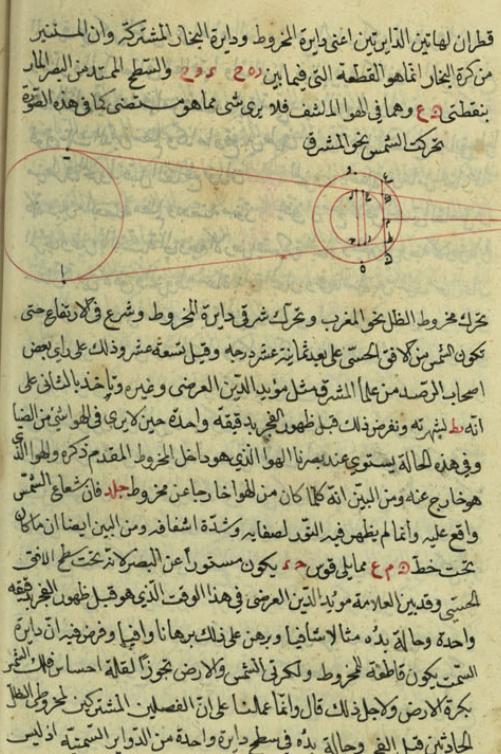 قطران لهاتين الدايرتين اعنى دايرة المخروط ودايرة البخار المشتركة وان المستنير
من كرة البخار انما هو القطعة التى فيما بين والسطح الممتد من البصر المار
بنقطتى وهما فى الهوا فلا يرى شى مما هو مستضى كما فى هذه الصورة
تحركت الشمس نحو المشرق
تحرك مخروط الظل نحو المغرب وتحرك شرقى دايرة المخروط وشرع فى الارتفاع حتى
تكون الشمس من الافق الحسى على بعد ثمانية عشر درجه وقيل تسعة عشر وذلك على راى بعض
اصحاب الرصد من علما المشرق مثل مويد الدين العرضى وغيره وناخذ بالثانى على
انه يط لشهرته ونفرض ذلك قبل ظهور الفجر بدقيقة واحدة حين لا يرى فى الهوا شى من الضيا
وفى هذه الحالة يستوى عند بصرنا الهوا الذى هو داخل المخروط المقدم ذكره والهوا الذى
هو خارج عنه ومن البين انه كلما كان من الهوا خارجا عن مخروط فان شعاع الشمس
واقع عليه وانما لم يظهر فيه النور لصفايه وشدة اشفافه ومن البين ايضا ان ما كان
تحت خط ه م ع مما يلى قوس يكون مستورا عن البصر لانه تحت سطح الافق
الحسى وقد بين العلامة مويد الدين العرضى فى هذا الوقت الذى هو قبل ظهور الفجر بدقيقه
واحدة وحالة بدُه مثالا شافيا وبرهن على ذلك برهانا وافيا وفرض فيه ان دايرة
السمت يكون قاطعة للمخروط ولكرتى الشمس والارض تجوزا لقلة احساس فلك الشمس
بكرة الارض ولاجل ذلك قال وانما عملنا على ان الفصلين المشتركين لمخروطى الظل
الحادثين قبل الفجر وحالة بدُه فى سطح دايرة واحدة من الدواير السمتية اذ ليس